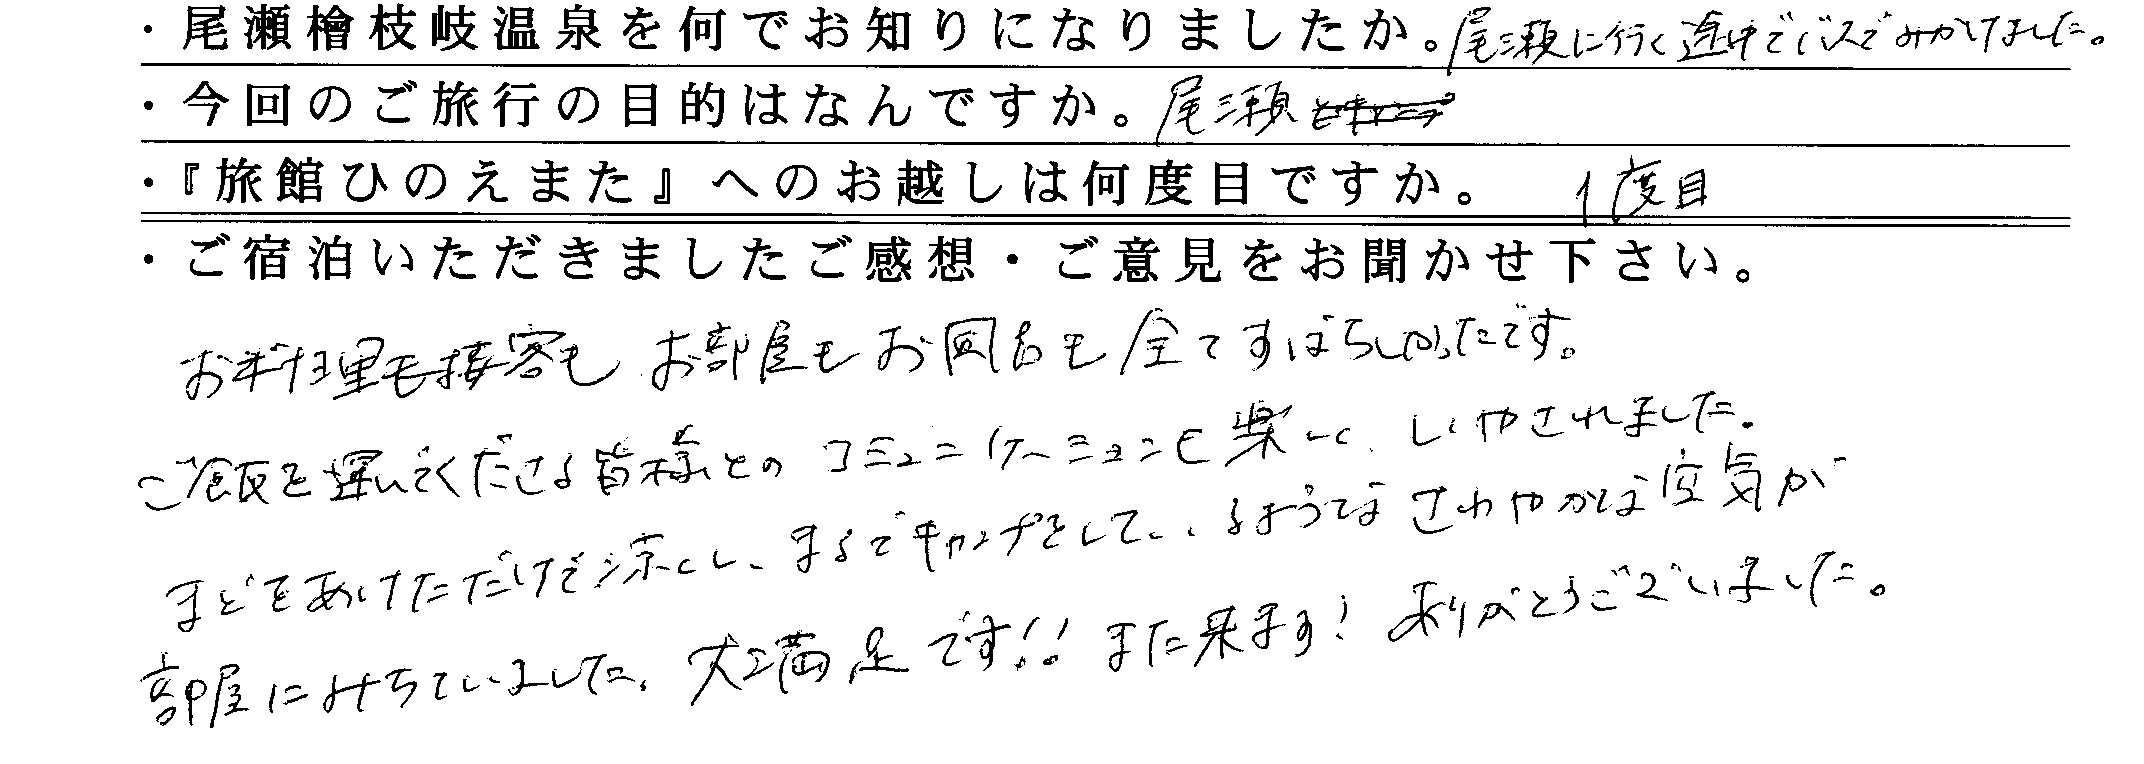 ・尾瀬檜枝岐温泉を何でお知りになりましたか。尾瀬に行く途中でバスでみかけました。
・今回のご旅行の目的はなんですか。尾瀬
・『旅館ひのえまた』へのお越しは何度目ですか。 1度目
・ご宿泊いただきましたご感想・ご意見をお聞かせ下さい。
お料理も接客も お部屋もお風呂も全てすばらしかったです。
ご飯を運んでくださる皆様とのコミュニケーションも楽しく、いやされました。
まどをあけただけで涼しく、まるでキャンプをしているようなさわやかな空気が
部屋にみちていました。大満足です!! また来ます! ありがとうございました。